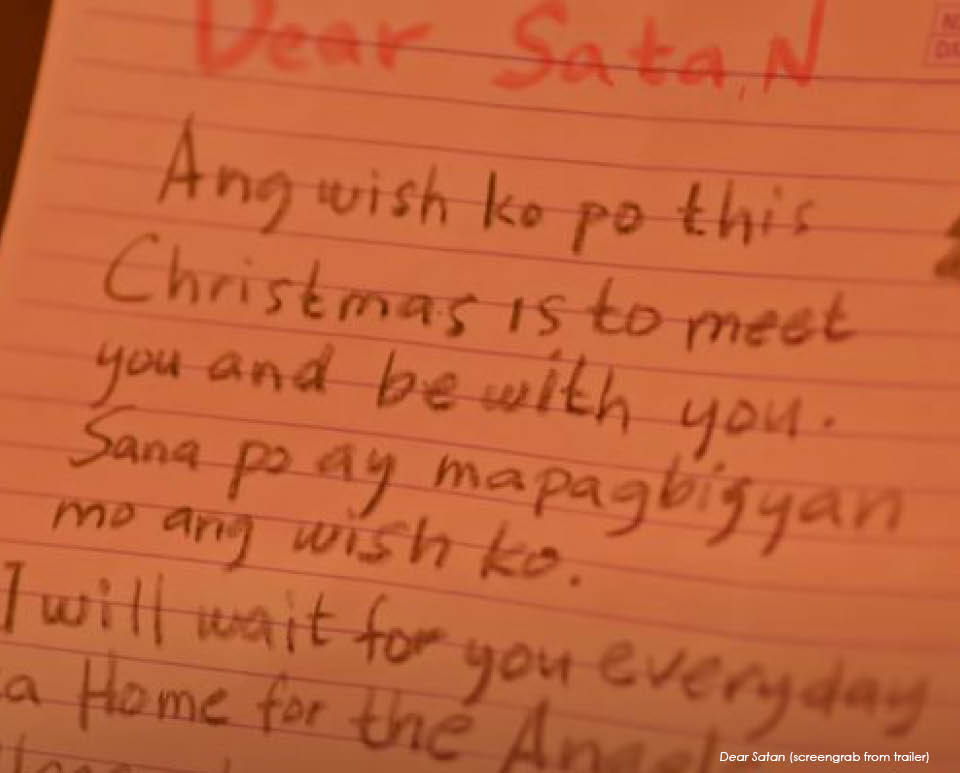 Dear Sata,N
Ang wish ko po this
Christmas is to meet
you and be with you.
Sana po ay mapagbigyan
mo ang wish ko.
I will wait for you everyday
sa Home for the Angel
Dear Satan (screengrab from trailer)